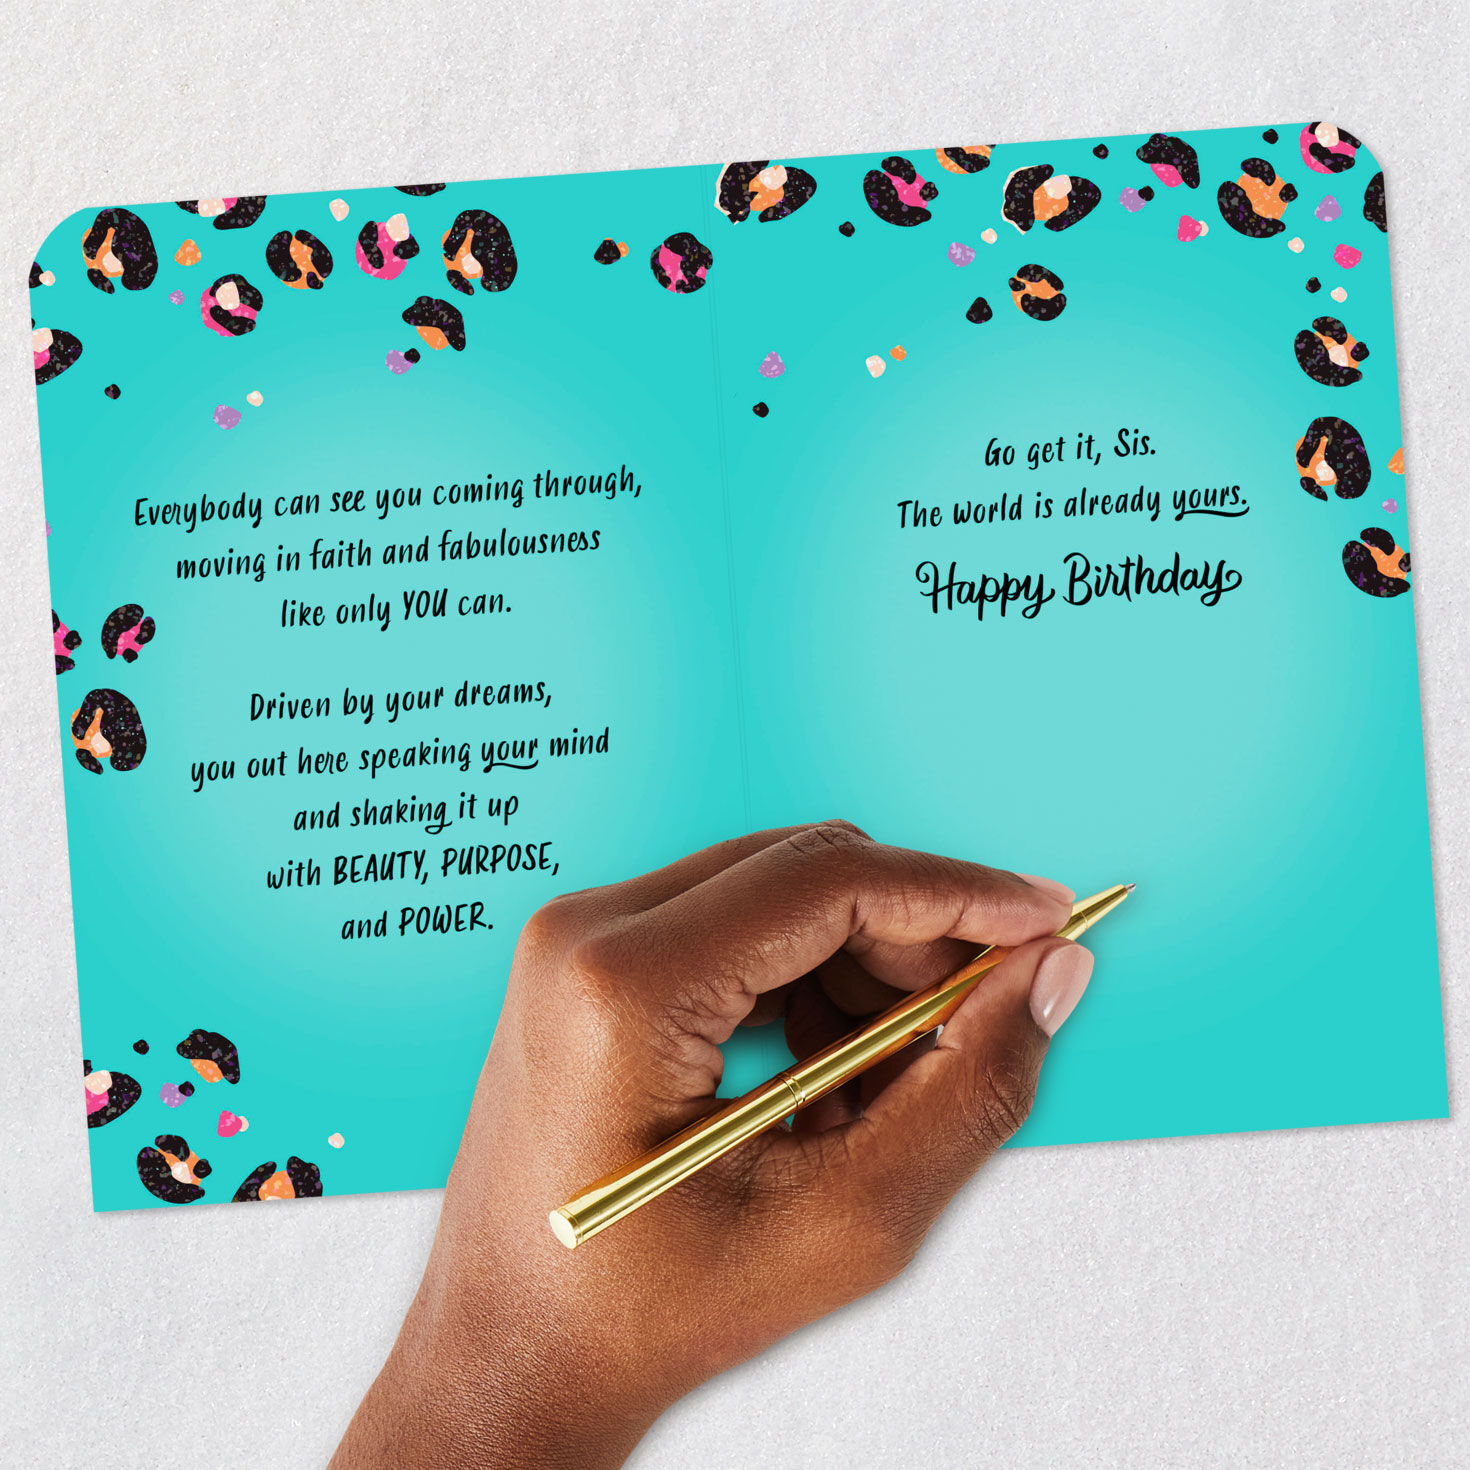 Everybody can see you coming through,
moving in faith and fabulousness
like only YOU can.
Driven by your dreams,
you out here speaking your mind
and shaking it up
with BEAUTY, PURPOSE,
and POWER.
Go get it, Sis.
The world is already yours.
Happy Birthday